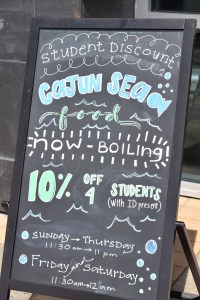 Student Discount
CAJUN SEA
food
now-BOILING!
10% OFF 4 STUDENTS
(With ID present)
SUNDAY → THURSDAY
11:30am → 11pm
FRIDAY and SATURDAY
11:30am → 12am